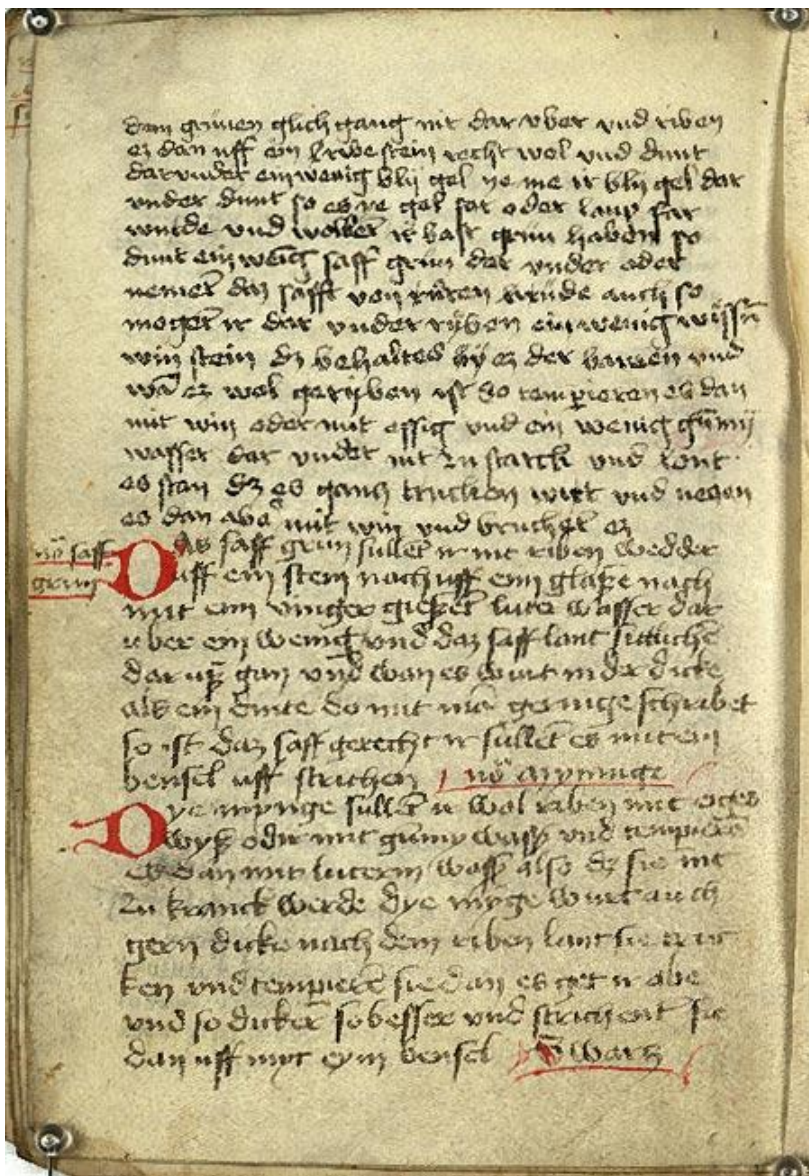 dem grünen glich gang nit dar vber vnd riben
ez dan uff ein stein recht wol vnd dunt
dar vnder ein wenig blij gel ye me ir blij gel dar
vnder dunt so es ye gel far oder laup far
wurde vnd wollet ir hast grün haben so
dunt ein wenig saff grün dar vnder oder
nemet daz safft von rüten auch so
moget ir dar vnder riben ein wenig wissen
win stein dz behaltes by ez der vnd
wā ez wol geriben ist so tempieren es dan
mit win oder mit essig vnd ein wenig gumij
wasser dar vnder nit zu starck vnd lont
es stan dz es gantz trucken wirt vnd
es dan abe mit win vnd bruchet ez
nō saff
grün
Das saff grün sullet ir nit riben wedder
uff ein stein nach uff einē glaße nach
mit eim vinger gießet luter wasser dar
uber ein wenig vnd daz saff lant sittlichē
dar uß gan vnd wan es wirt in der dicke
als ein dinte do mit mā geringe schribet
so ist daz saff gerecht ir sullet es mit eim
bensel uff strichen nō mynnige
Dye mynge sullet ir wol riben mit eiges
wyß oder mit gumy waßs vnd tempierē
es dan mit luterm waßs also dz sie nit
zu kranck werde dye mynge wirt auch
gern dicke nach dem riben lant sie truc
ken vnd tempierē sie dan es get ir abe
vnd so dicker so besser vnd strichent sie
dan uff myt eym bensel